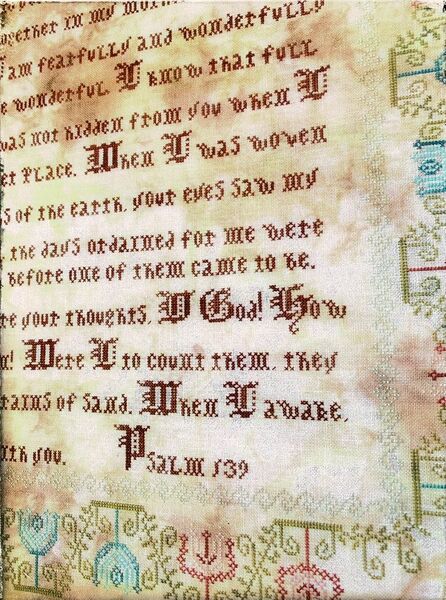 ogether in my moth
I am fearfully and wonderfully
e wonderful. I know that full
was not hidden from you when I
et place. When I was woven
s of the earth, your eyes saw my
. the days ordained for me were
before one of them came to be.
re your thoughts, O God! How
m! Were I to count them, they
rains of sand. When I awake,
ith you.
Psalm 139